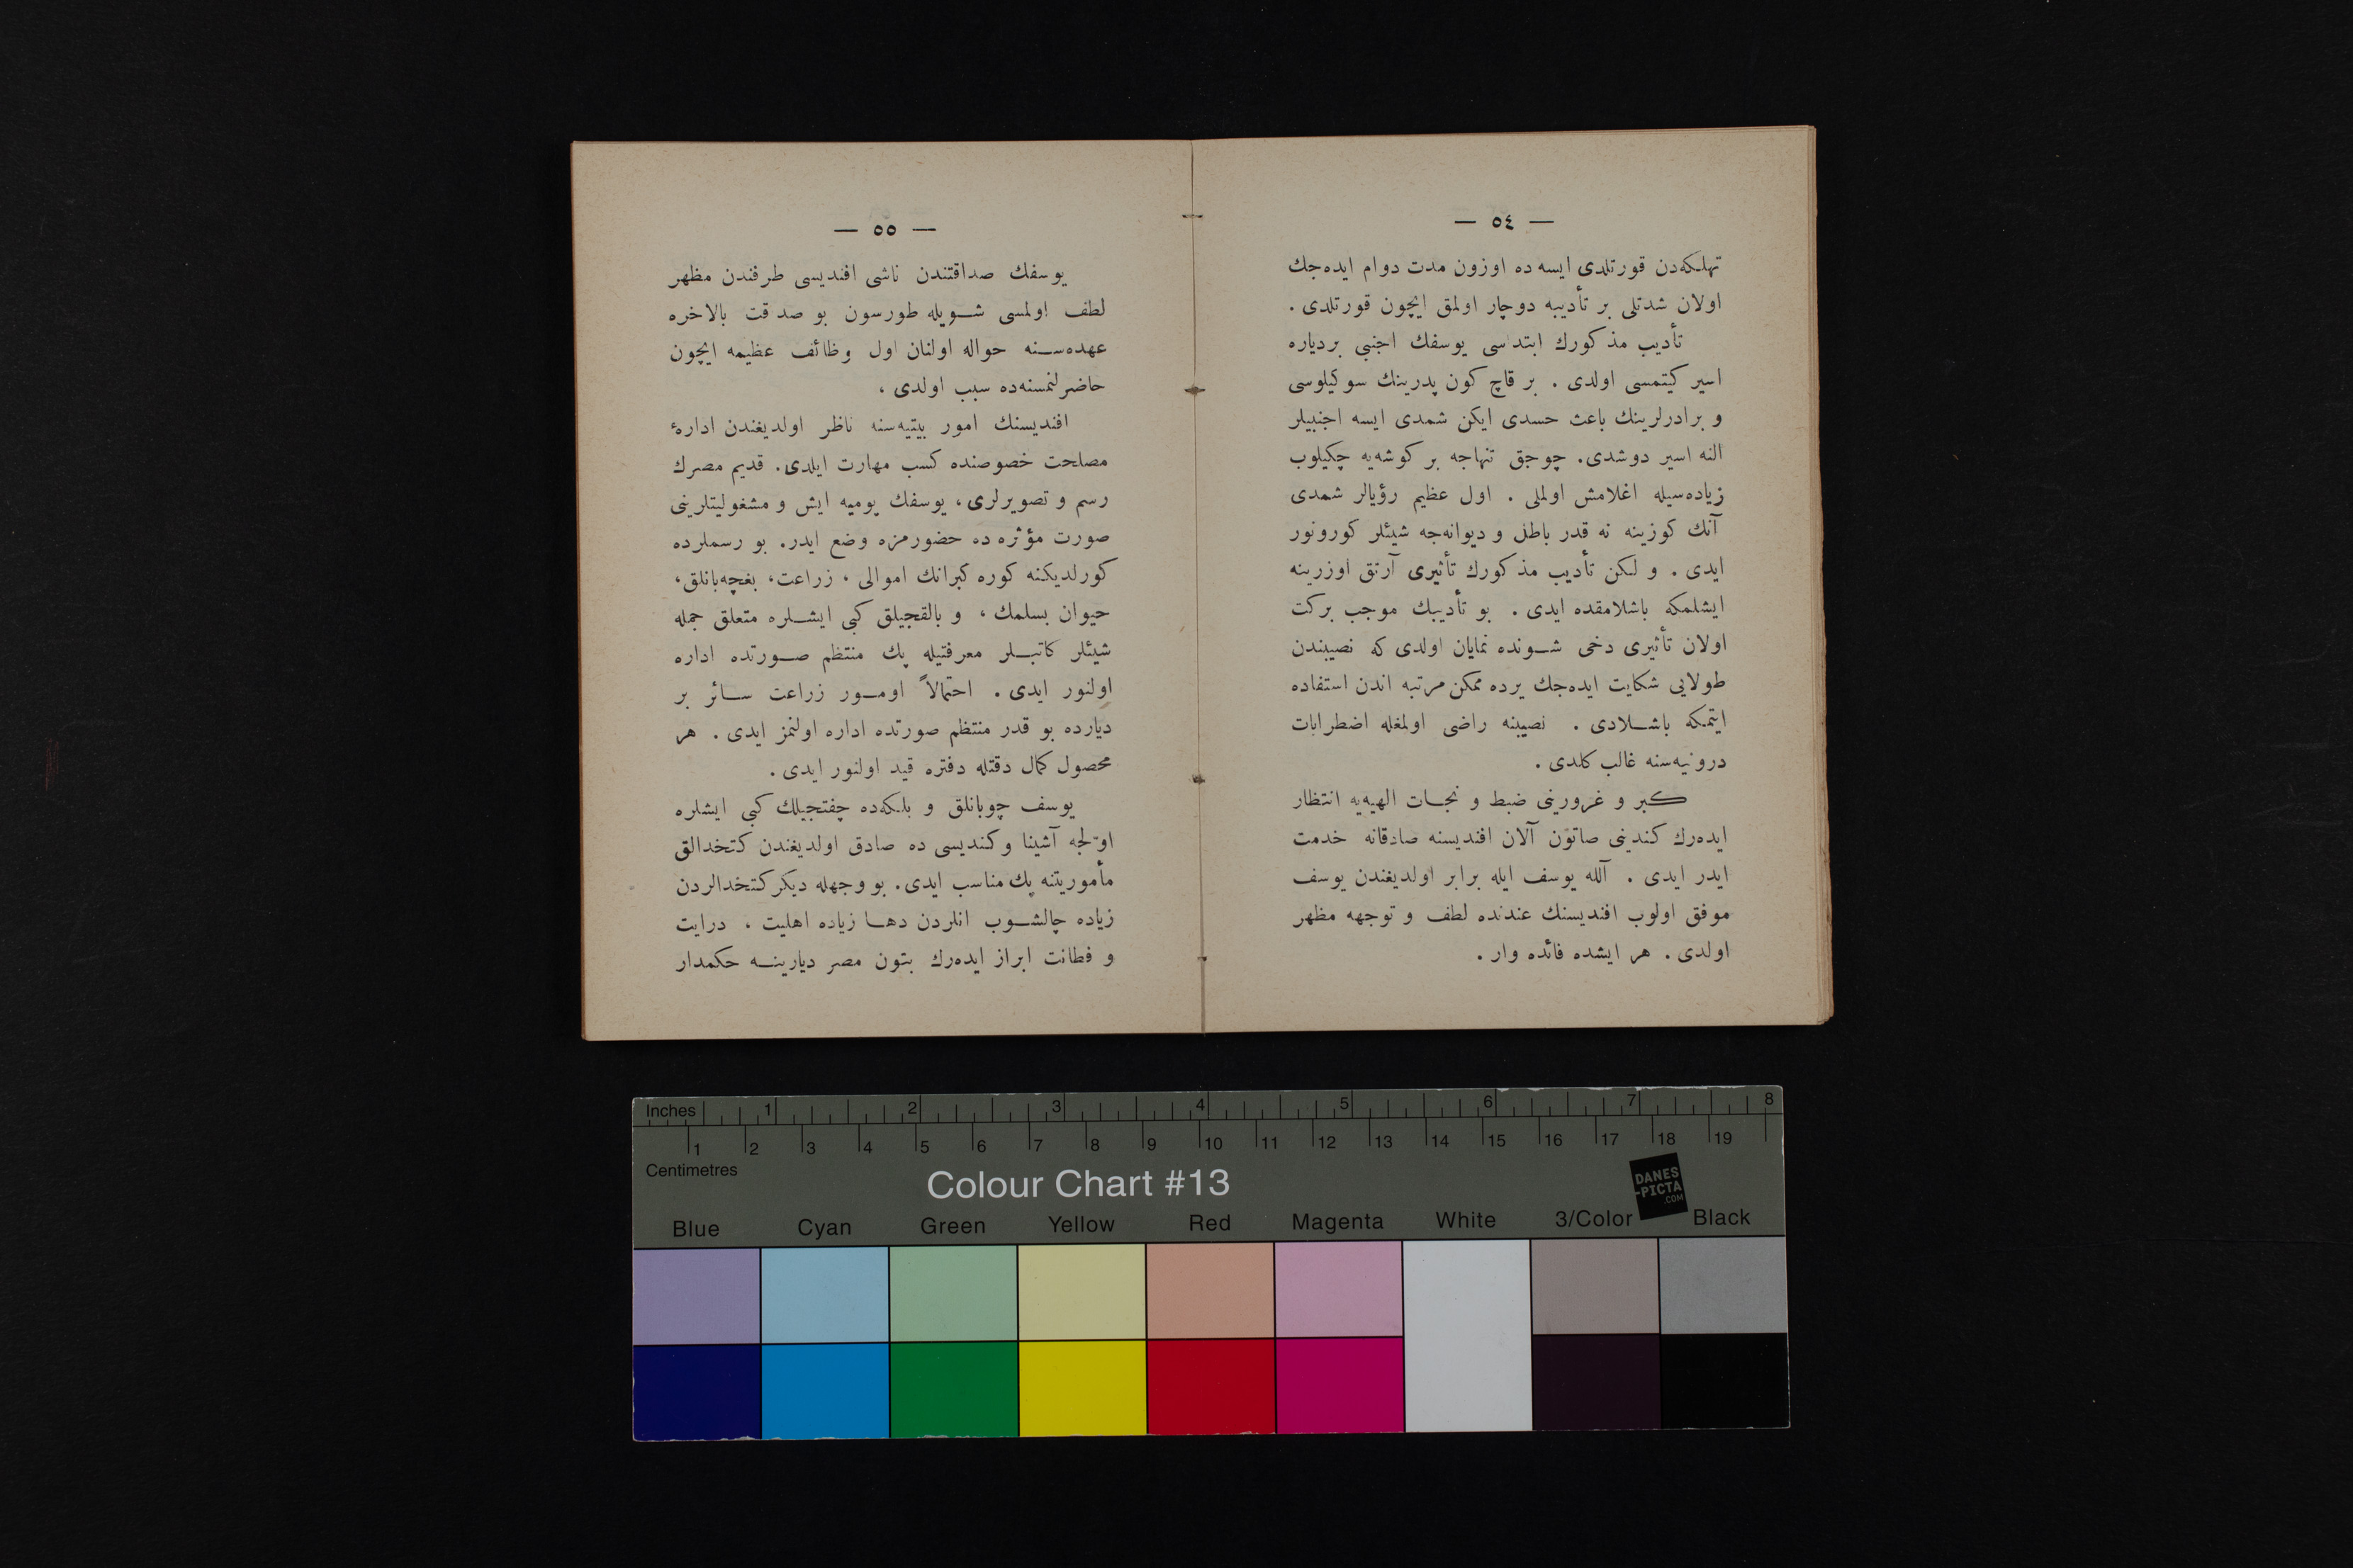 — ٥٤ —
تهلكه‌دن قورتلدی ایسه ده اوزون مدت دوام ایده‌جك
اولان شدتلی بر تأدیبه دوچار اولمق ایچون قورتلدی .
تأدیب مذكورك ابتداسی یوسفك اجنبی بردیاره
اسیر كیتمسی اولدی . بر قاچ كون پدرینك سوكیلوسی
و برادرلرینك باعث حسدی ایكن شمدی ایسه اجنبیلر
النه اسیر دوشدی. چوجق تنهاجه بر كوشه‌یه چكیلوب
زیاده‌سیله اغلامش اولملی . اول عظیم رؤیالر شمدی
آنك كوزینه نه قدر باطل و دیوانه‌جه شیئلر كورونور
ایدی . و لكن تأدیب مذكورك تأثیری آرتق اوزرینه
ایشلمكه باشلامقده ایدی . بو تأدیبك موجب بركت
اولان تأثیری دخی شونده نمایان اولدی كه نصیبندن
طولایی شكایت ایده‌جك یرده ممكن مرتبه اندن استفاده
ایتمكه باشلادی . نصیبنه راضی اولمغله اضطرابات
درونیه‌سنه غالب كلدی .
كبر و غرورینی ضبط و نجات الهیه‌یه انتظار
ایده‌رك كندینی صاتون آلان افندیسنه صادقانه خدمت
ایدر ایدی . آلله یوسف ایله برابر اولدیغندن یوسف
موفق اولوب افندیسنك عندنده لطف و توجهه مظهر
اولدی . هر ایشده فائده وار .
— ٥٥ —
یوسفك صداقتندن ناشی افندیسی طرفندن مظهر
لطف اولمسی شویله طورسون بو صدقت بالاخره
عهده‌سنه حواله اولنان اول وظائف عظیمه ایچون
حاضرلنمسنه‌ده سبب اولدی ،
افندیسنك امور بیتیه‌سنه ناظر اولدیغندن ادارهٔ
مصلحت خصوصنده كسب مهارت ایلدی. قدیم مصرك
رسم و تصویرلری، یوسفك یومیه ایش و مشغولیتلرینی
صورت مؤثره ده حضورمزه وضع ایدر. بو رسملرده
كورلدیكنه كوره كبرانك اموالی ، زراعت، بغچه‌بانلق،
حیوان بسلمك ، و بالقجیلق كبی ایشلره متعلق جمله
شیئلر كاتبلر معرفتیله پك منتظم صورتده اداره
اولنور ایدی . احتمالاً اومور زراعت سائر بر
دیارده بو قدر منتظم صورتده اداره اولنمز ایدی . هر
محصول كمال دقتله دفتره قید اولنور ایدی .
یوسف چوبانلق و بلكه‌ده چفتجیلك كبی ایشلره
اوّلجه آشینا و كندیسی ده صادق اولدیغندن كتخدالق
مأموریتنه پك مناسب ایدی. بو وجهله دیكر كتخدالردن
زیاده چالشوب انلردن دها زیاده اهلیت ، درایت
و فطانت ابراز ایده‌رك بتون مصر دیارینه حكمدار
Inches 1 2 3 4 5 6 7 8
1 2 3 4 5 6 7 8 9 10 11 12 13 14 15 16 17 18 19
Centimetres
Colour Chart #13
DANES
-PICTA
.COM
Blue Cyan Green Yellow Red Magenta White 3/Color Black